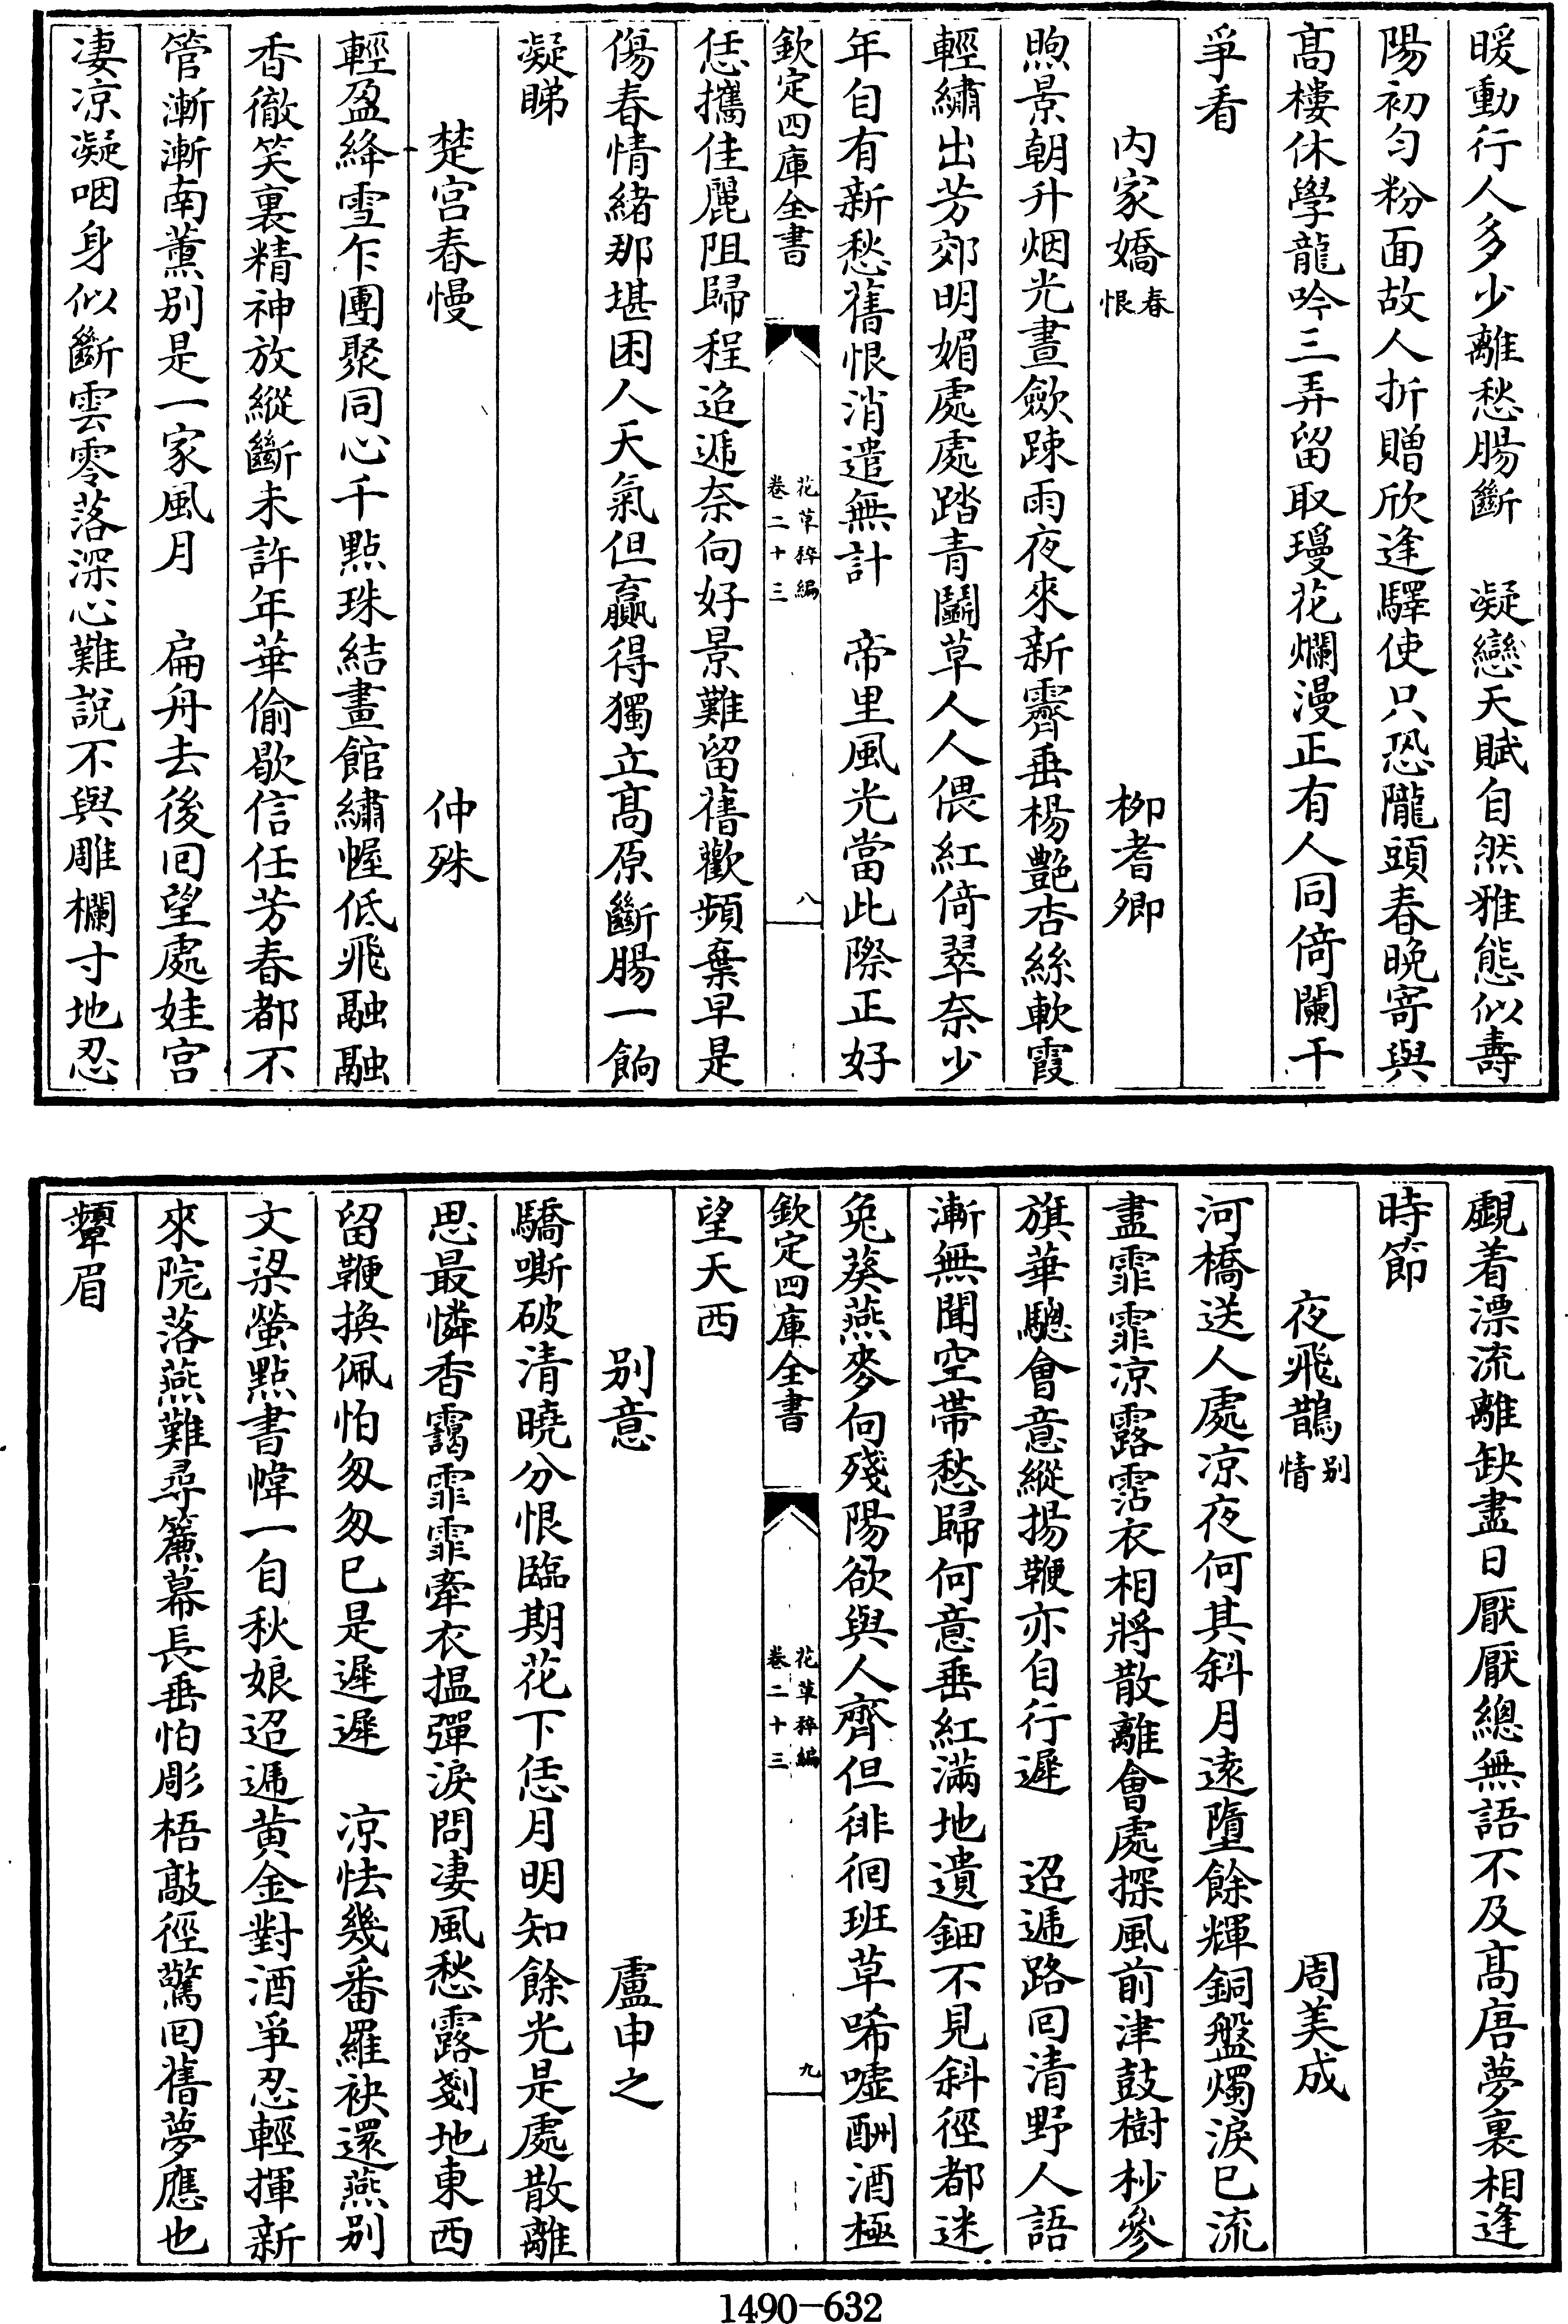 暖動行人多少離愁腸斷　凝戀天賦自然雅態似壽
陽初勻粉面故人折贈欣逢驛使只恐隴頭春晚寄與
髙樓休學龍吟三弄留取瓊花爛漫正有人同倚闌干
爭看
内家嬌春恨　柳耆卿
煦景朝升烟光晝斂踈雨夜來新霽垂楊艶杏絲軟霞
輕繡出芳郊明媚處處踏青鬬草人人偎紅倚翠奈少
年自有新愁舊恨消遣無計　帝里風光當此際正好
恁攜佳麗阻歸程迢遞奈何好景難留舊歡頻棄早是
傷春情緒那堪困人天氣但贏得獨立髙原斷腸一餉
凝睇
楚宫春慢　仲殊
輕盈絳雪乍團聚同心千點珠結畫館繡幄低飛融融
香徹笑裏精神放縱斷未許年華偷歇信任芳春都不
管漸漸南薰别是一家風月　扁舟去後囘望處娃宫
凄凉凝咽身似斷雲零落深心難說不與雕欄寸地忍
欽定四庫全書
花草稡編
卷二十三
八
覷着漂流離缺盡日厭厭總無語不及髙唐夢裏相逢
時節
夜飛鵲别情　周美成
河橋送人處凉夜何其斜月遠墮餘輝銅盤燭淚已流
盡霏霏凉露霑衣相將散離會處探風前津鼓樹杪參
旗華驄會意縱揚鞭亦自行遲　迢遞路囘清野人語
漸無聞空帶愁歸何意重紅滿地遺鈿不見斜徑都迷
兔葵燕麥向殘陽欲與人齊但徘徊班草唏噓酬酒極
望天西
别意　盧申之
驕嘶破清曉分恨臨期花下恁月明知餘光是處散離
思最憐香靄霏霏牽衣揾彈淚問凄風愁露剗地東西
留鞭換佩怕匆匆已是遲遲　凉怯幾番羅袂還燕别
文梁螢㸃書幃一自秋娘迢遞黄金對酒爭忍輕揮新
來院落燕難尋簾幕長垂怕彫梧敲徑驚囘舊夢應也
顰眉
欽定四庫全書
花草稡編
卷二十三
九
1490-632